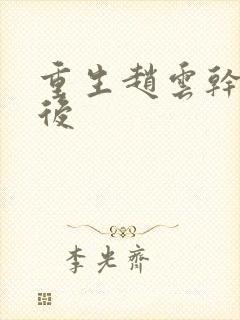 重生趙雲幹
後
李光齊